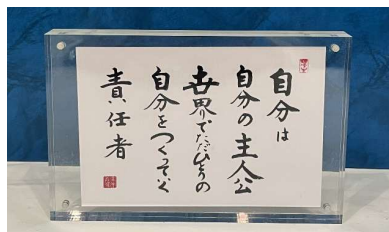 自分は
自分の主人公
世界でただひとりの
自分をつくっていく
責任者